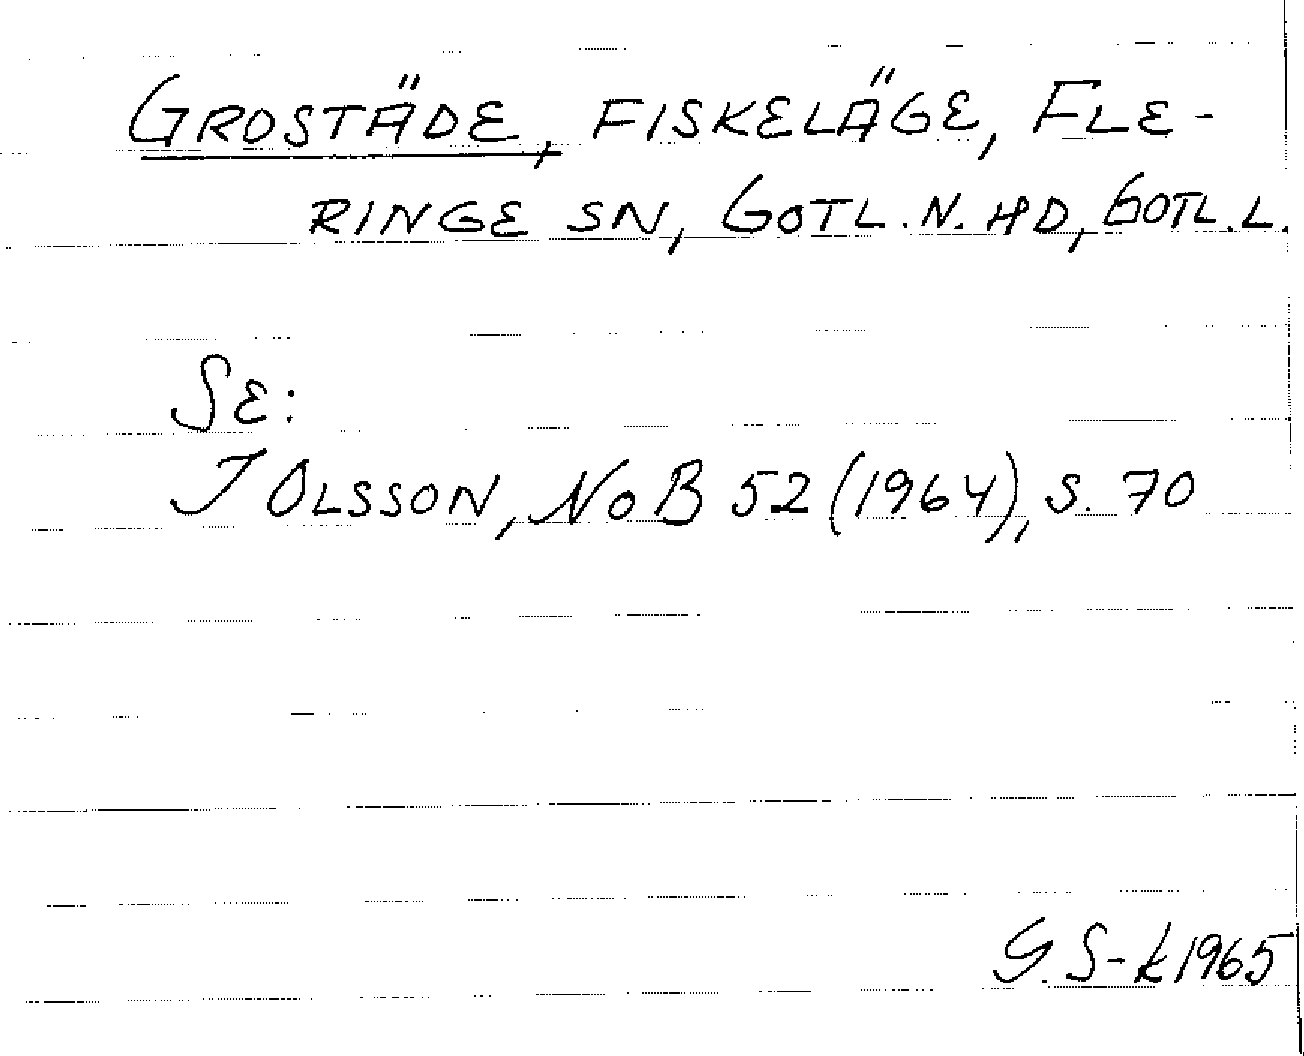 GROSTÄDE, FISKELÄGE, FLE-
RINGE SN, GOTL. N. HD, GOTL. L.
SE:
I OLSSON, NoB 52 (1964), S. 70
G. S-k 1965